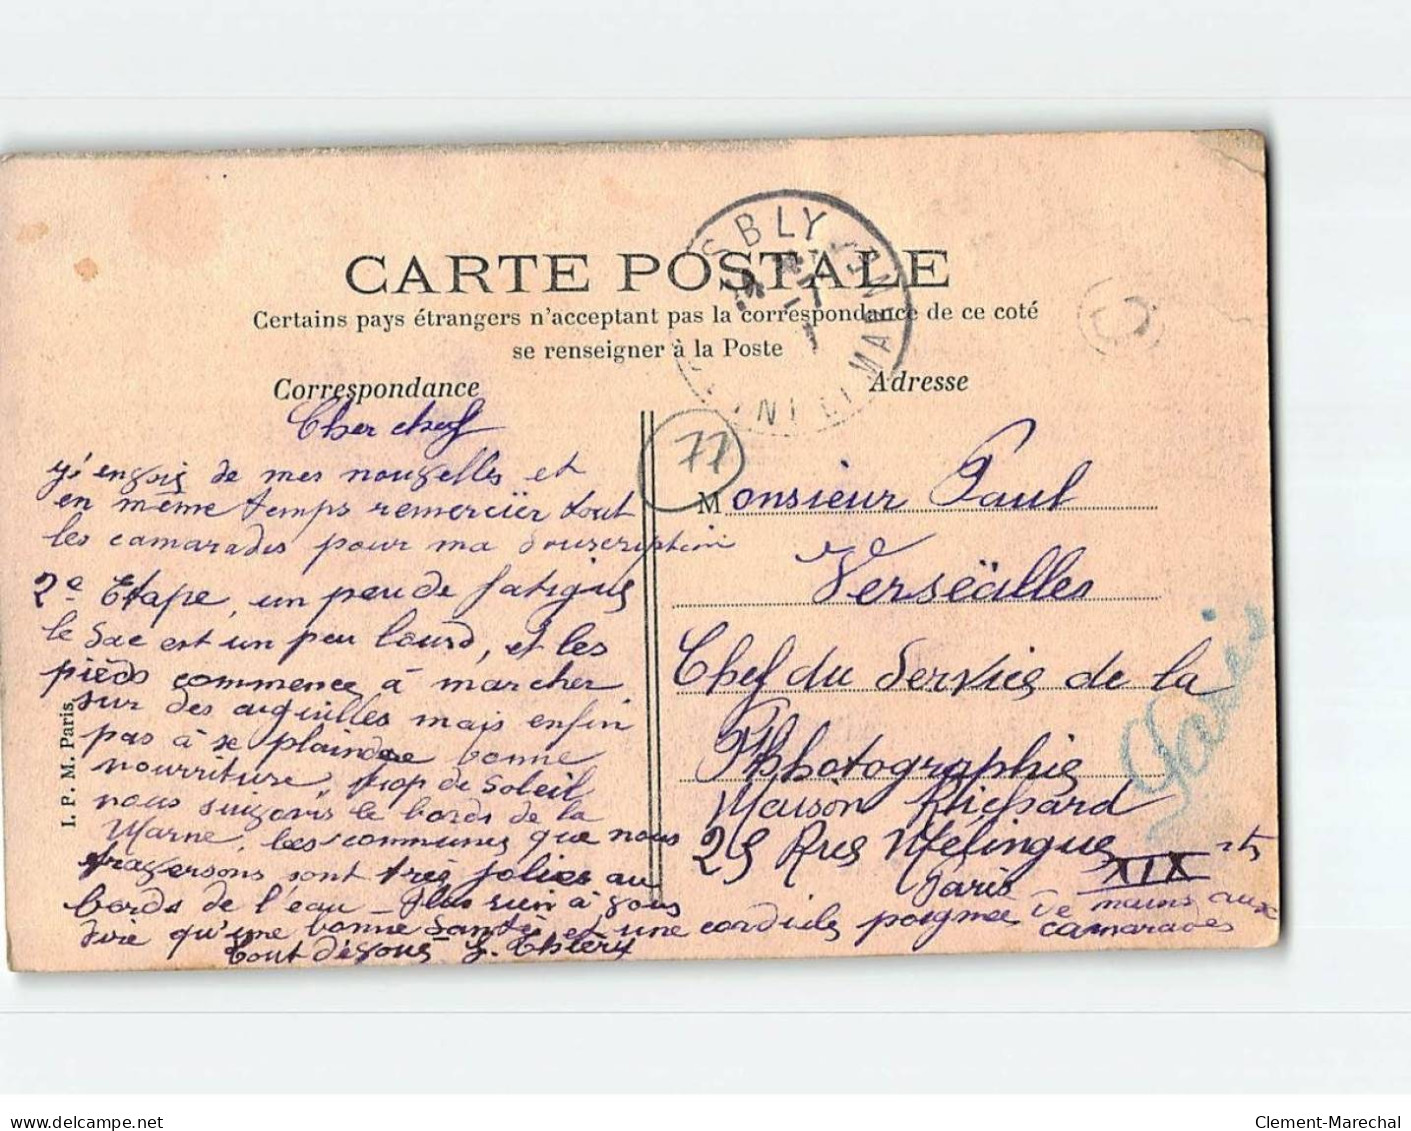 CARTE POSTALE
Certains pays étrangers n'acceptent pas la correspondance de ce coté
se renseigner à la Poste
Correspondance
Adresse
SBLY
MARNE
77
Cher chef
j'envois de mes nouvelles et
en même temps remercier tout
les camarades pour ma souscription
2e Etape, un peu de fatigue
le sac est un peu lourd, et les
pieds commence à marcher
sur des aiguilles mais enfin
pas à se plaindre bonne
nourriture, trop de soleil
nous suivons le bords de la
Marne. les communes que nous
traversons sont très jolies au
bords de l'eau - Plus rien à vous
dire qu'une bonne Santé et une cordiale poignée de mains aux
camarades
tout dévoué
I. P. M. Paris
Monsieur Paul
Verseailles
Chef du Service de la
Photographie
Maison Richard
25 Rue Mélingue
Paris XIX
Paris
delcampe.net
Clement-Marechal